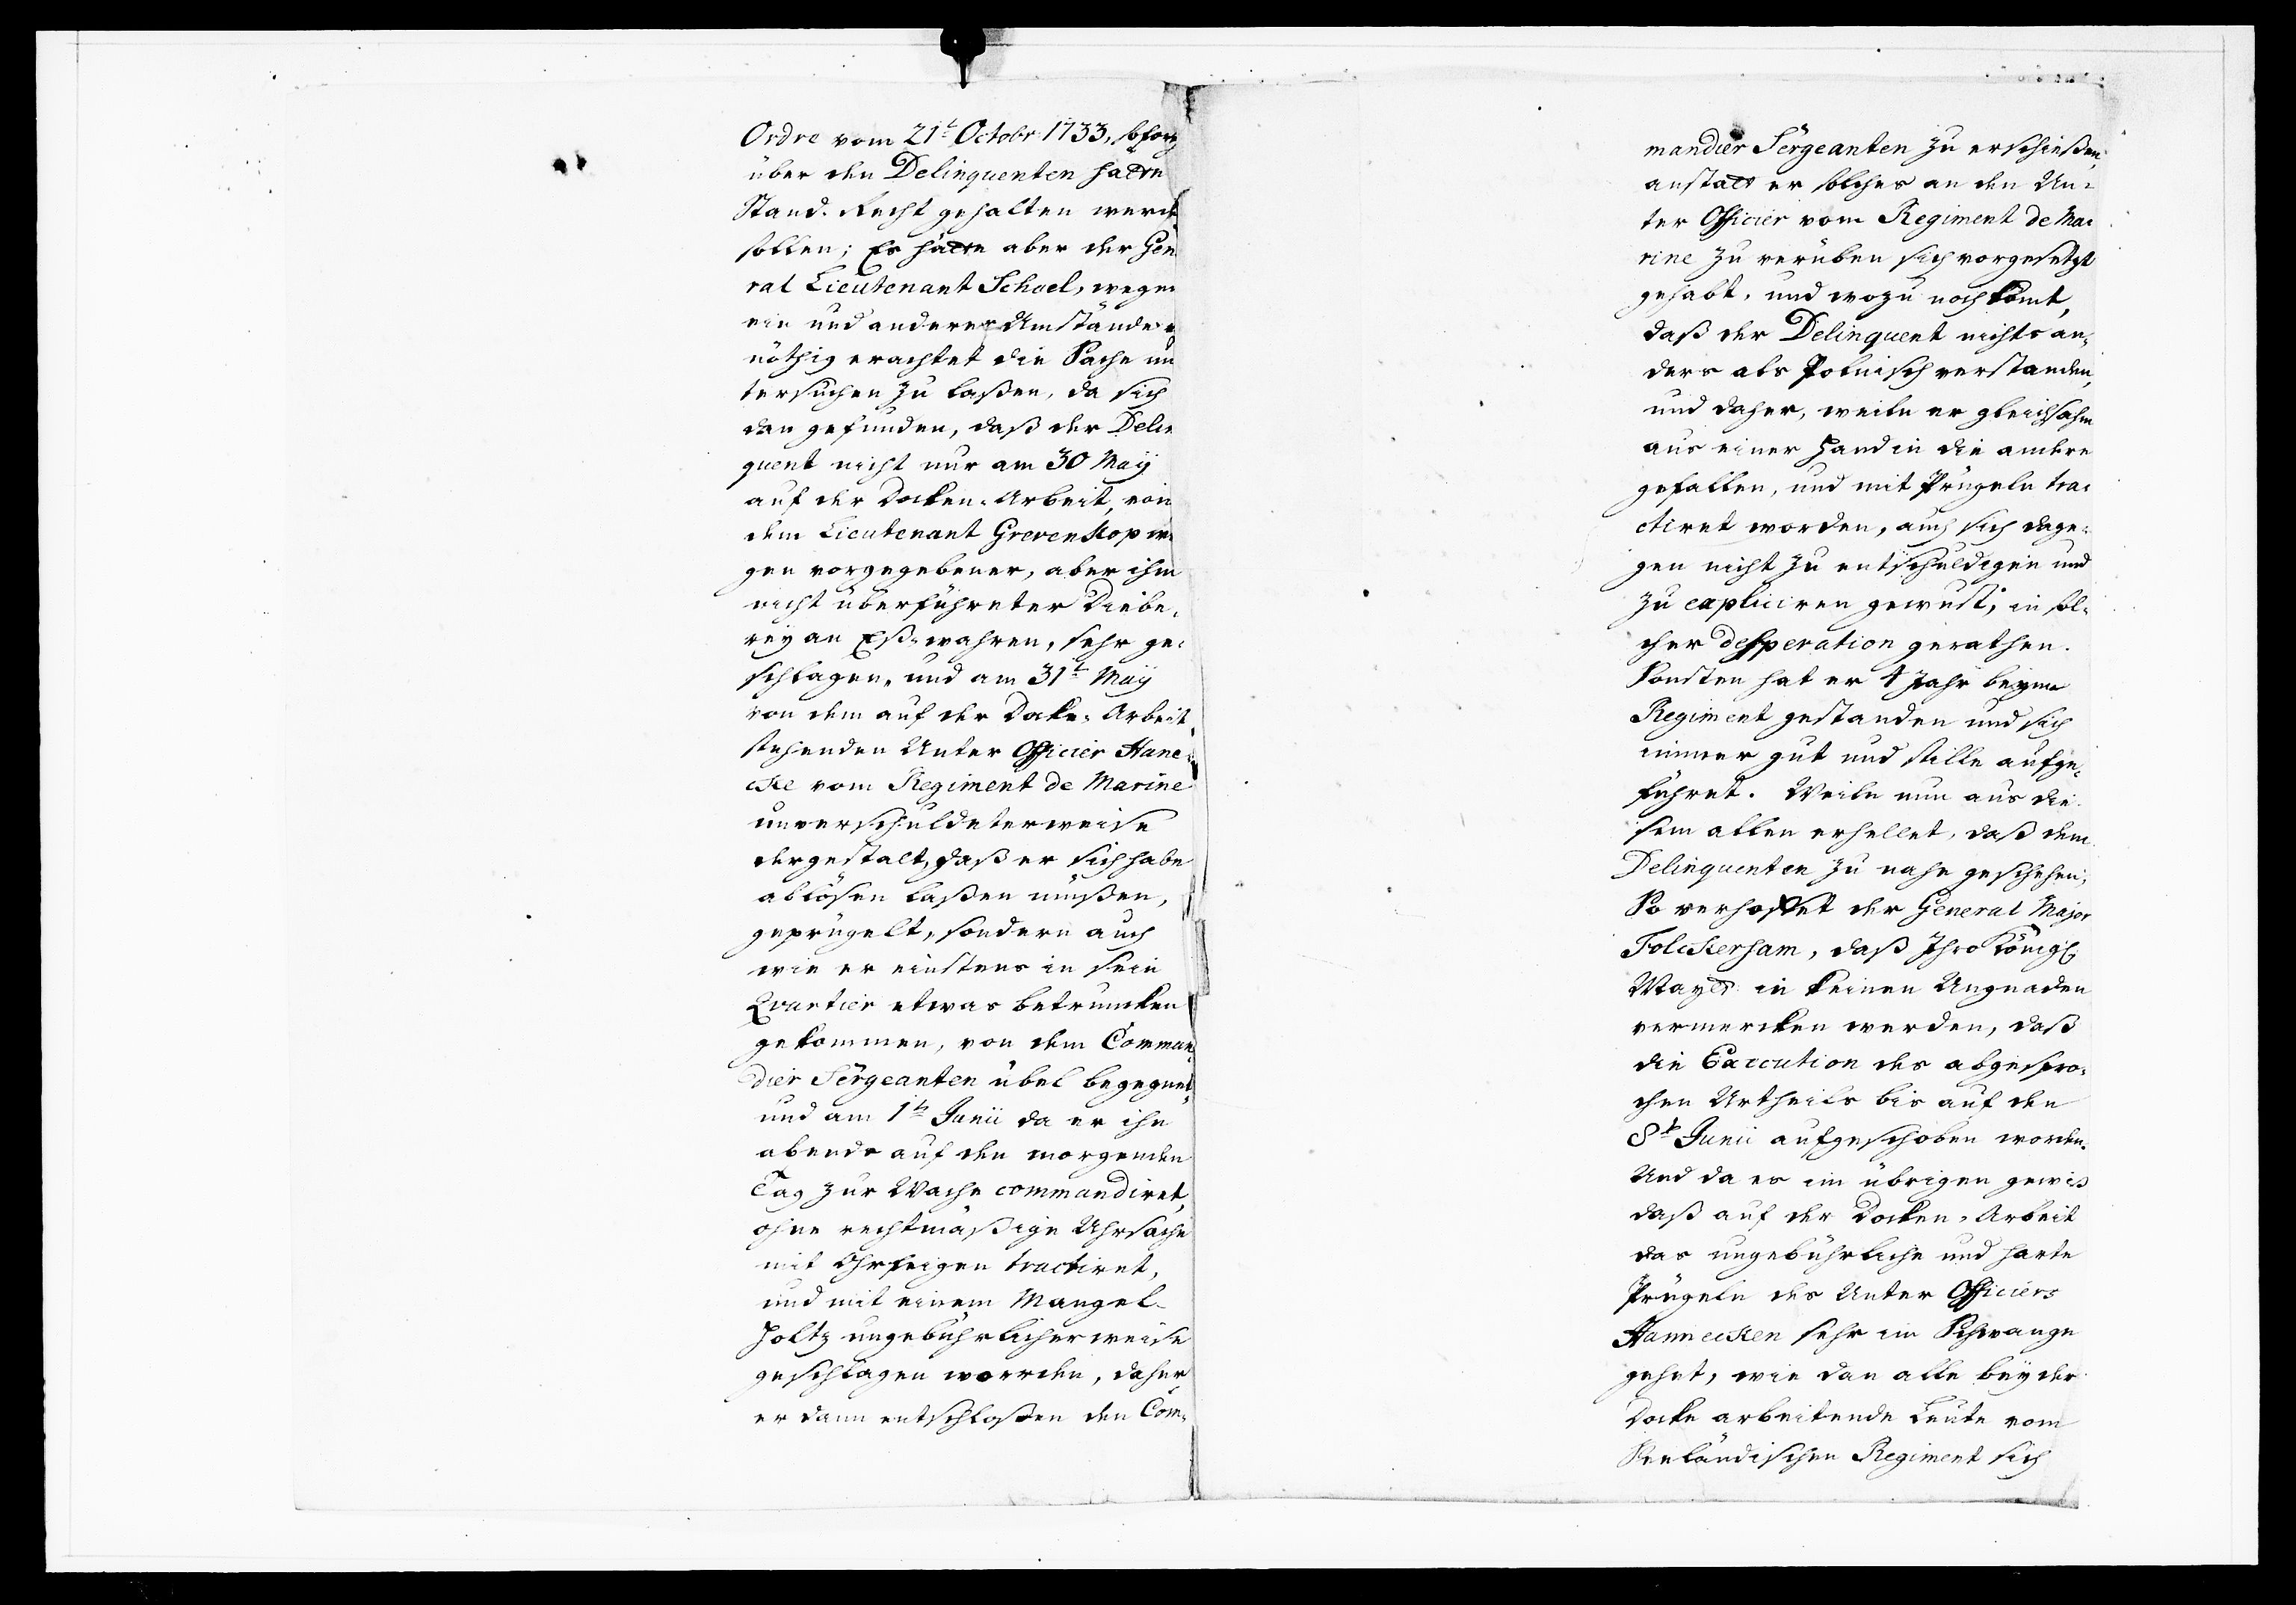 Ordre vom 21t Octobr 1733, sofort
über den Delinquenten hätte
Stand-Recht gehalten werd
sollen; Es hätte aber der Gen
ral Lieutenant Schoel, wegen
ein und anderer Umstände
nöthig erachtet die Sache un
tersuchen zu laßen, da sich
dan gefunden, daß der Delin
quent nicht nur am 30 Maÿ
auf der Docken-Arbeit, von
dem Lieutenant Grevenkop we
gen vorgegebener, aber ihm
nicht überführeter Diebe-
rey an Eß-wahren, sehr ge-
schlagen, und am 31t Maÿ
von dem auf der Docke-Arbeit
stehenden Unter Officier Hane-
cke vom Regiment de Marine
unverschuldeterweise
dergestalt, daß er sich habe
ablösen laßen müßen,
geprügelt, sondern auch
wie er einstens in sein
Qvartier etwas betruncken
gekommen, von dem Comman-
dier Sergeanten übel begegnet,
und am 1ts Junii da er ihn
abends auf den morgenden
Tag zur Wache commandiret,
ohne rechtmäßige Uhrsache
mit Ohrfeigen tractiret,
und mit einem Mangel-
Holtz ungebührlicherweise
geschlagen worden, daher
er dann entschloßen den Com-
mandier Sergeanten zu erschießen,
anstatt er solches an den Un-
ter Officier vom Regiment de Ma-
rine zu verüben sich vorgesetzt
gehabt, und wozu noch komt,
daß der Delinquent nichts an-
ders als Polnisch verstanden,
und daher, weiln er gleichsahm
aus einer Hand in die andere
gefallen, und mit Prügeln tra-
ctiret worden, auch sich dage-
gen nicht zu entschuldigen und
zu expliciren gewust, in sol-
cher desperation gerathen.
Sonsten hat er 4 Jahr beym
Regiment gestanden und sich
immer gut und stille aufge-
führet. Weiln nun aus die-
sem allen erhellet, daß dem
Delinquenten zu nahe geschehen;
So verhoffet der General Major
Folckersham, daß Ihro Königl
Mayet in keinen Ungnaden
vermercken werden, daß
die Execution des abgespro-
chen Urtheils bis auf den
8t Junii aufgeschoben worden.
Und da es im übrigen gewis
daß auf der Docken-Arbeit
das ungebührliche und harte
Prügeln des Unter Officiers
Hannecken sehr im Schwange
gehet, wie dan alle bey der
Docke arbeitende Leute vom
Seeländischen Regiment sich